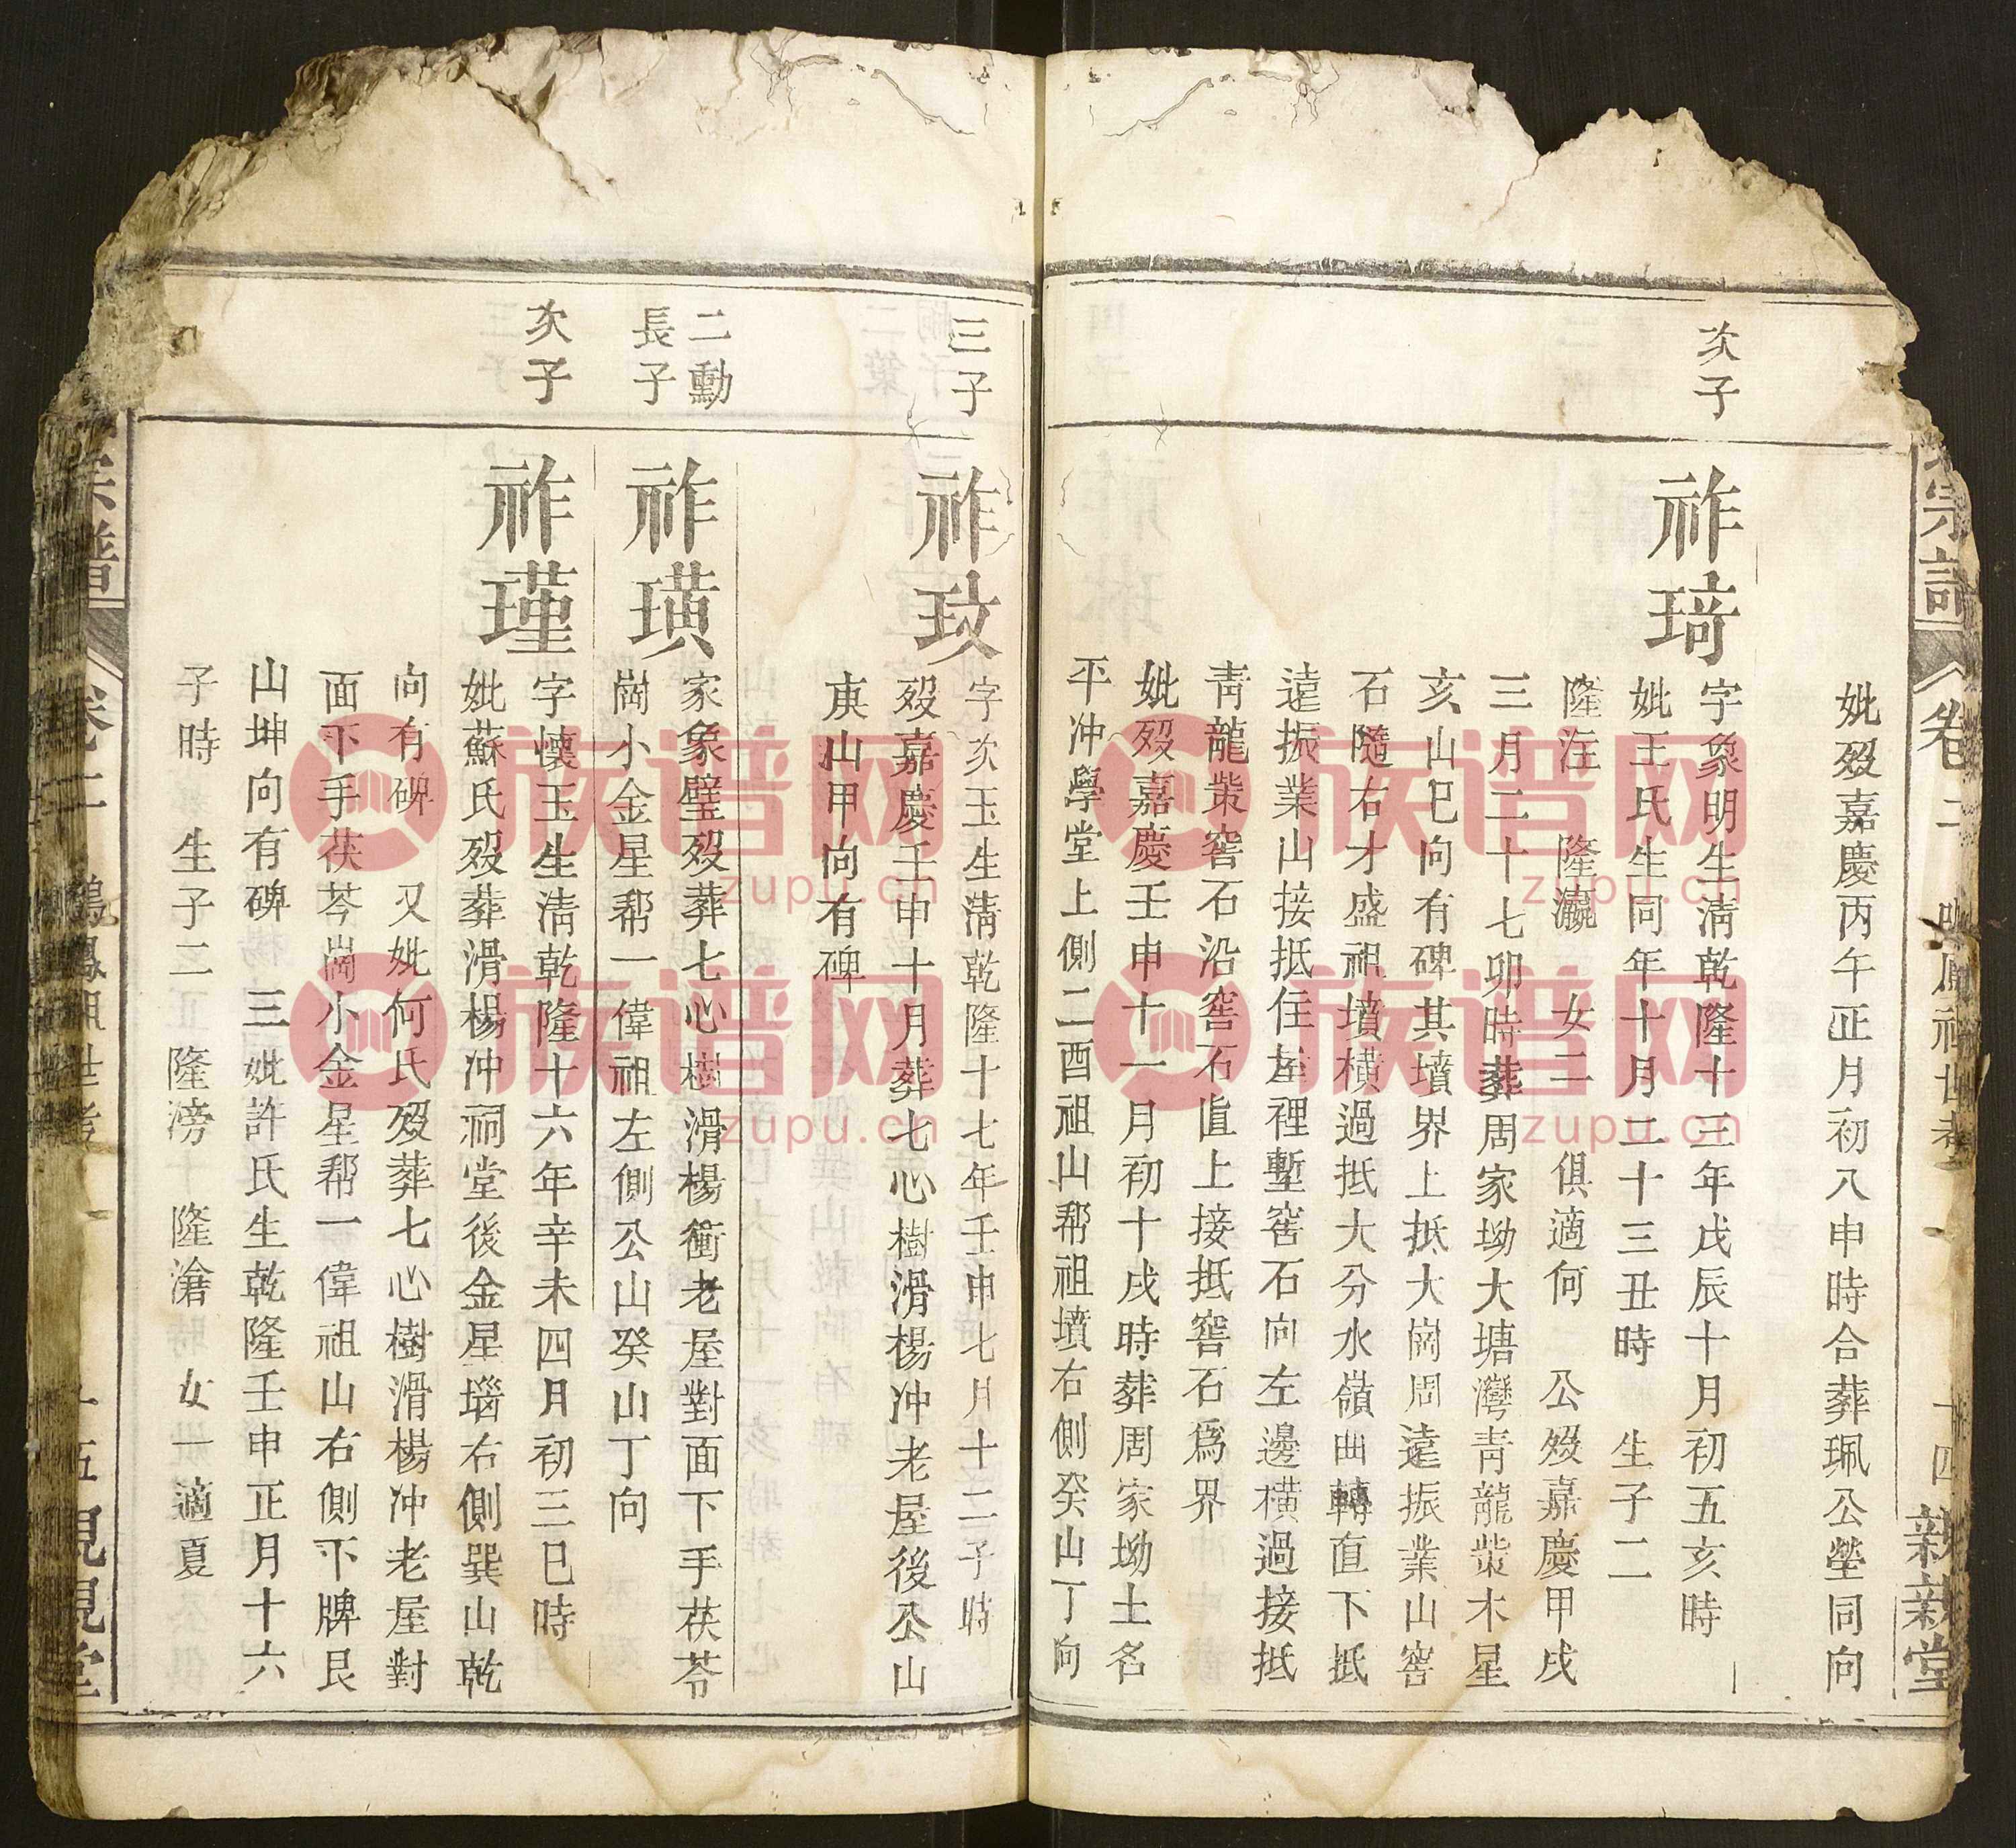 宗譜
卷二
十四
親親堂
妣歿嘉慶丙午正月初八申時合葬珮公塋同向
次子
祚琦
字象明生淸乾隆十三年戊辰十月初五亥時
妣王氏生同年十月二十三丑時 生子二
隆注 隆瀛 女二 俱適何 公歿嘉慶甲戌
三月二十七卯時葬周家坳大塘灣青龍柴木星
亥山巳向有碑其墳界上抵大崗周遠振業山窖
石隨右才盛祖墳橫過抵大分水嶺曲轉直下抵
遠振業山接抵住屋裡塹窖石向左邊橫過接抵
青龍柴窖石沿窖石直上接抵窖石爲界
妣歿嘉慶壬申十一月初十戌時葬周家坳土名
平冲學堂上側二酉祖山帮祖墳右側癸山丁向
三子
祚玟
字次玉生淸乾隆十七年壬申七月十二子時
歿嘉慶壬申十月葬七心樹滑楊冲老屋後公山
庚山甲向有碑
二勳
長子
祚璜
家象璧歿葬七心樹滑楊衝老屋對面下手茯苓
崗小金星帮一偉祖左側公山癸山丁向
次子
祚瑾
字懷玉生淸乾隆十六年辛未四月初三巳時
妣蘇氏歿葬滑楊冲祠堂後金星瑙右側巽山乾
向有碑 又妣何氏歿葬七心樹滑楊冲老屋對
面下手茯苓崗小金星帮一偉祖山右側下牌艮
山坤向有碑 三妣許氏生乾隆壬申正月十六
子時 生子二 隆滂 隆滄 女一適夏
宗譜
卷二
親親堂
族谱网
zupu.cn
族谱网
zupu.cn
族谱网
zupu.cn
族谱网
zupu.cn